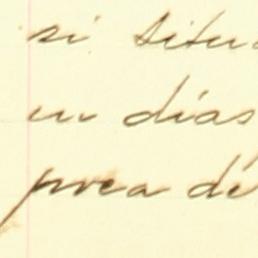 si situ
en días
prea dé